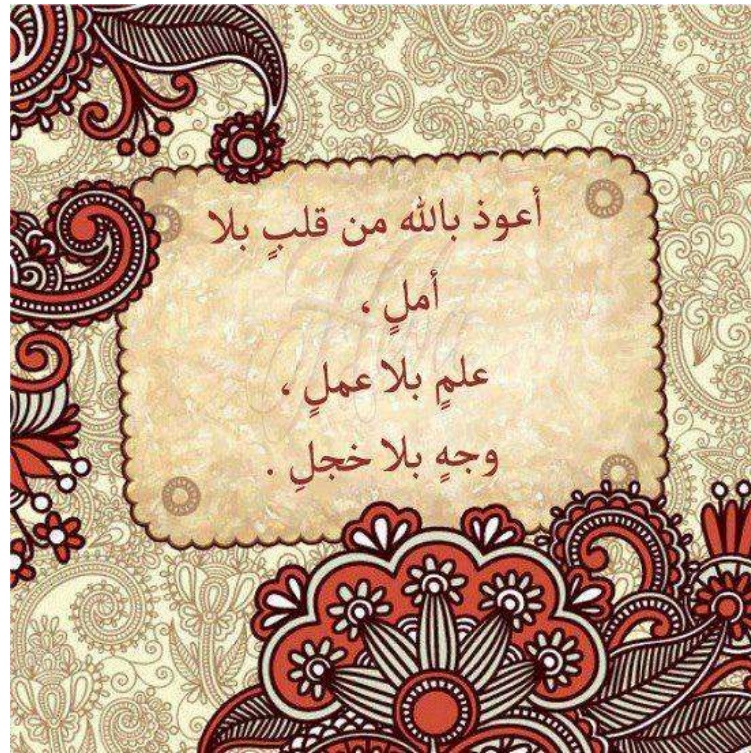 أعوذ بالله من قلبٍ بلا
أملٍ ،
علمٍ بلا عملٍ ،
وجهٍ بلا خجلِ .